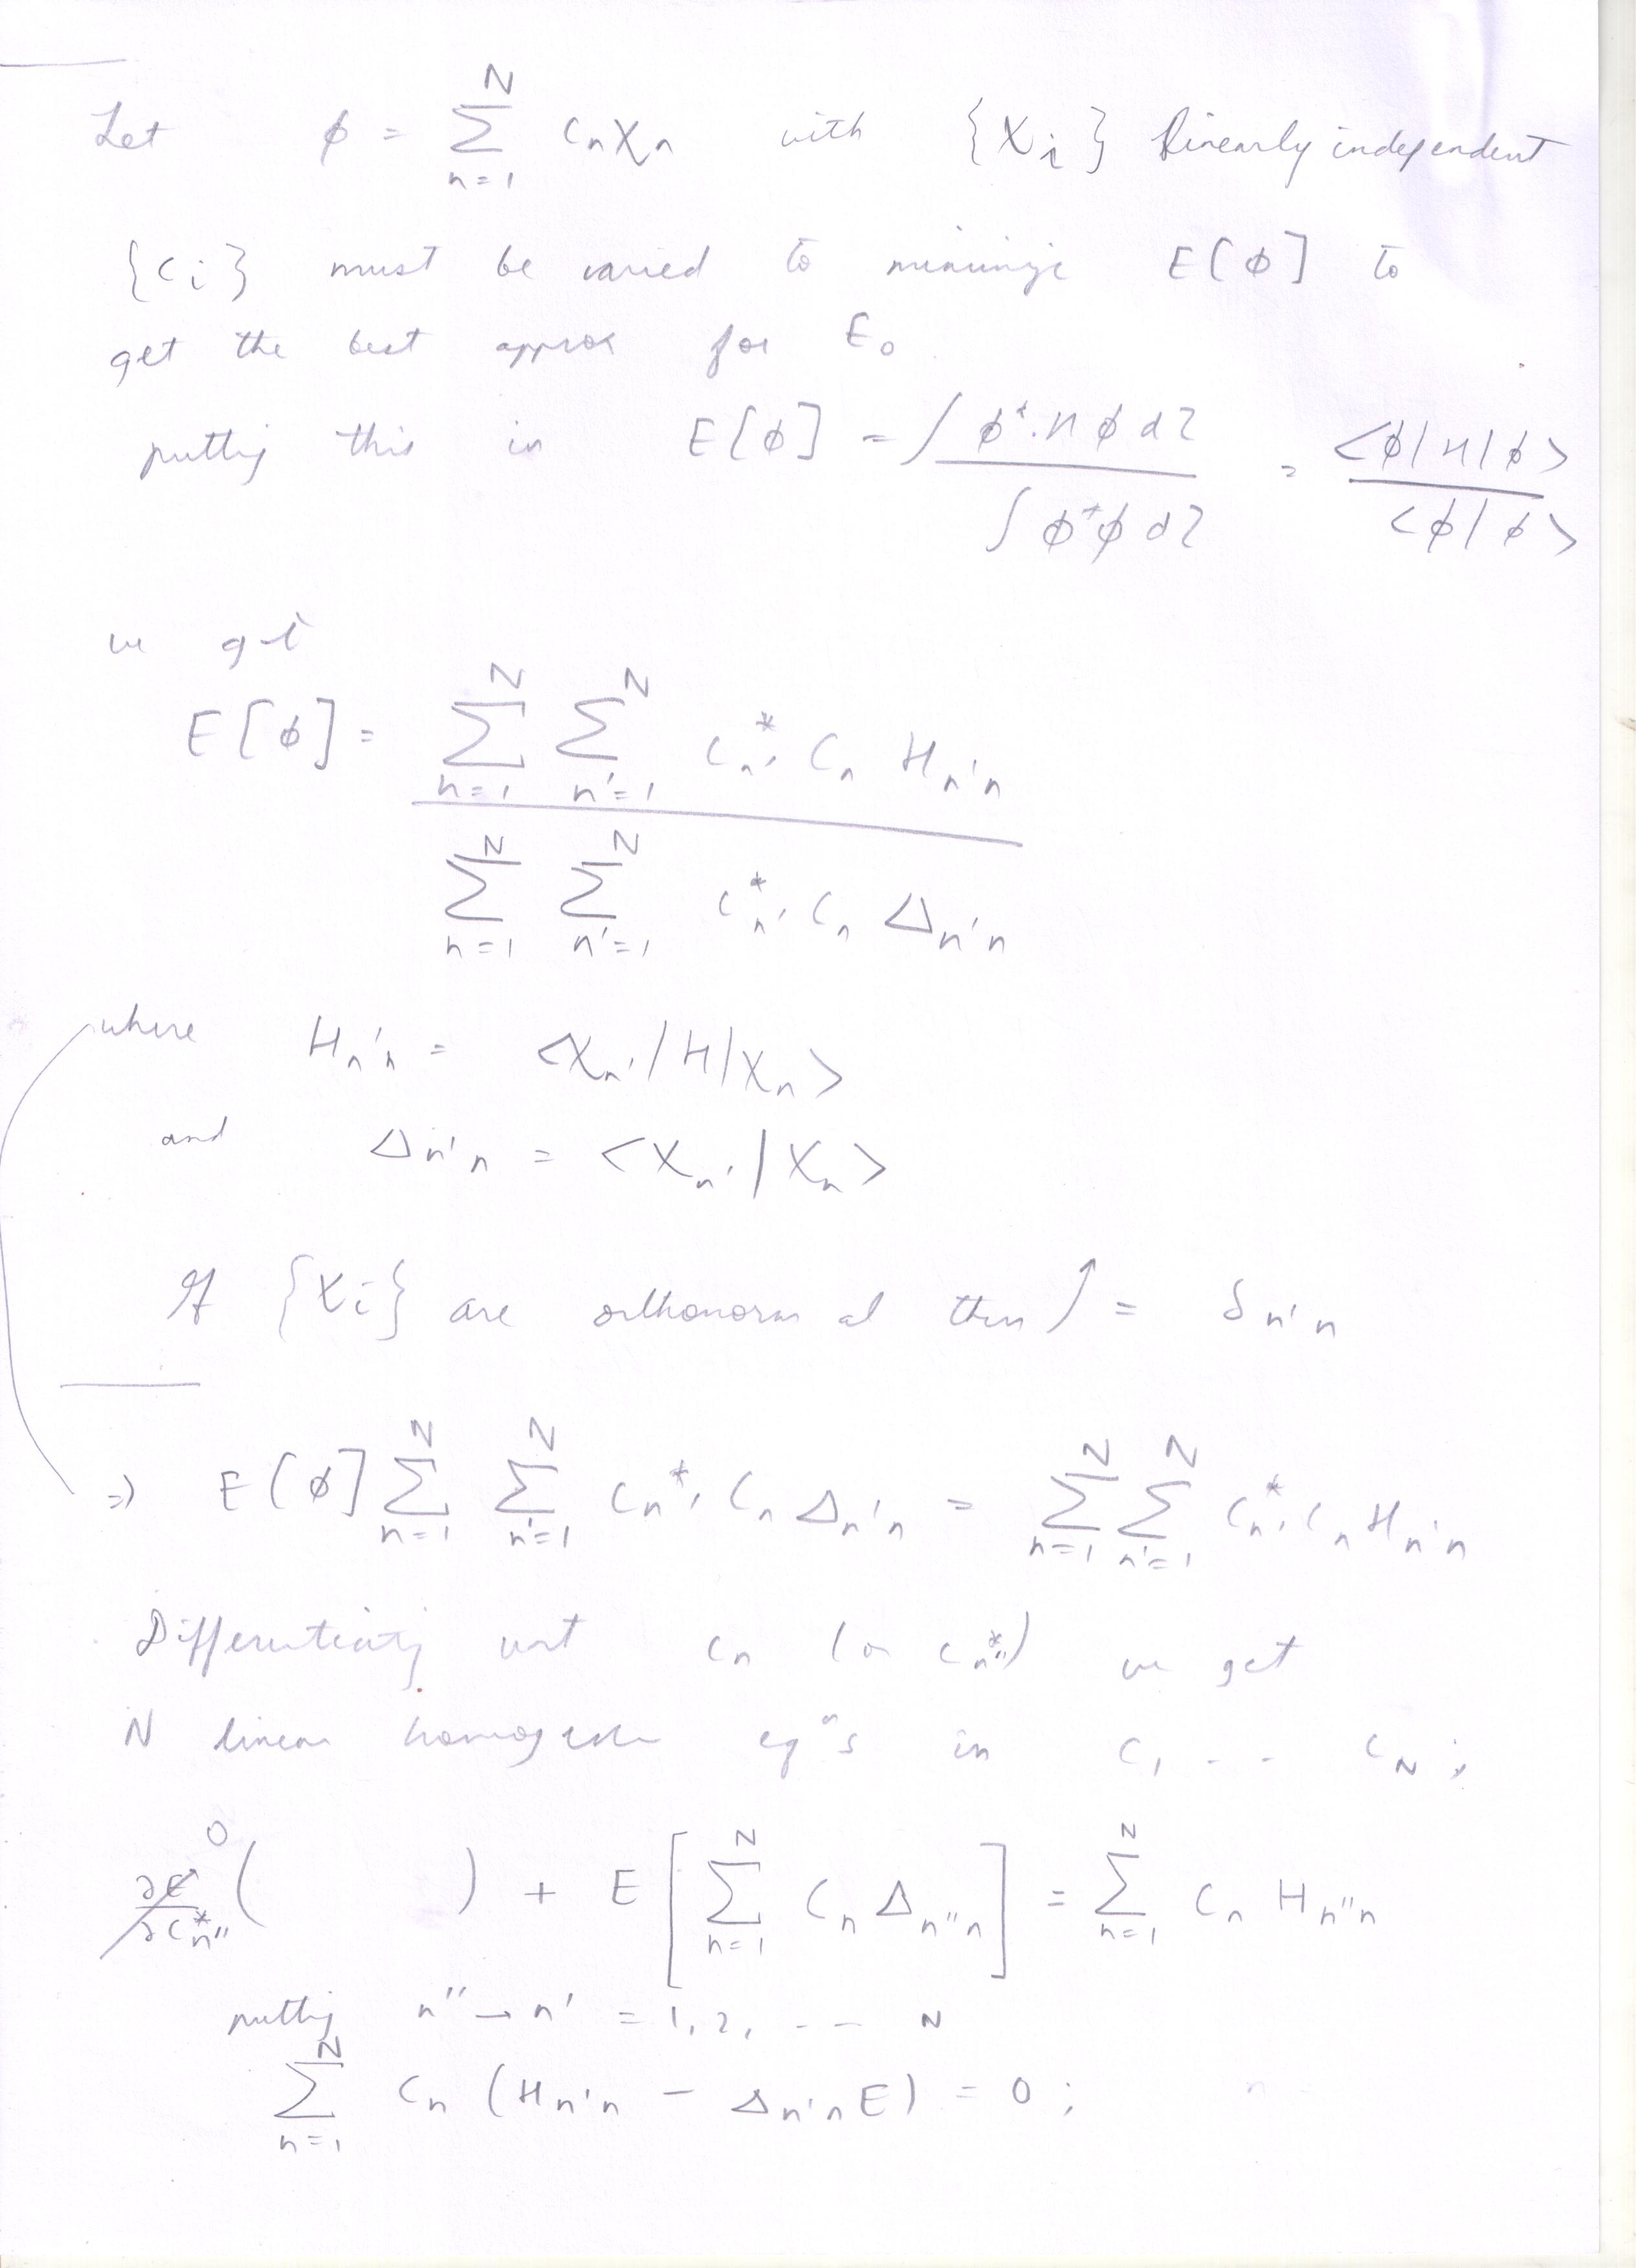 Let φ = ∑_{n=1}^{N} C_n χ_n with {χ_i} linearly independent
{C_i} must be varied to minimize E[φ] to
get the best approx for E_0.
putting this in E[φ] = ∫ φ* H φ dτ / ∫ φ* φ dτ = <φ|H|φ> / <φ|φ>
we get
E[φ] = ∑_{n=1}^{N} ∑_{n'=1}^{N} C*_{n'} C_n H_{n'n} / ∑_{n=1}^{N} ∑_{n'=1}^{N} C*_{n'} C_n Δ_{n'n}
where H_{n'n} = <χ_{n'}|H|χ_n>
and Δ_{n'n} = <χ_{n'}|χ_n>
If {χ_i} are orthonormal then ↑ = δ_{n'n}
⇒ E[φ] ∑_{n=1}^{N} ∑_{n'=1}^{N} C*_{n'} C_n Δ_{n'n} = ∑_{n=1}^{N} ∑_{n'=1}^{N} C*_{n'} C_n H_{n'n}
Differentiating wrt C_n (or C*_{n''}) we get
N linear homogeneous eqⁿs in C_1 - - C_N ;
∂E/∂C*_{n''} 0 ( ) + E [ ∑_{n=1}^{N} C_n Δ_{n''n} ] = ∑_{n=1}^{N} C_n H_{n''n}
putting n'' → n' = 1, 2, - - N
∑_{n=1}^{N} C_n (H_{n'n} − Δ_{n'n} E) = 0 ;